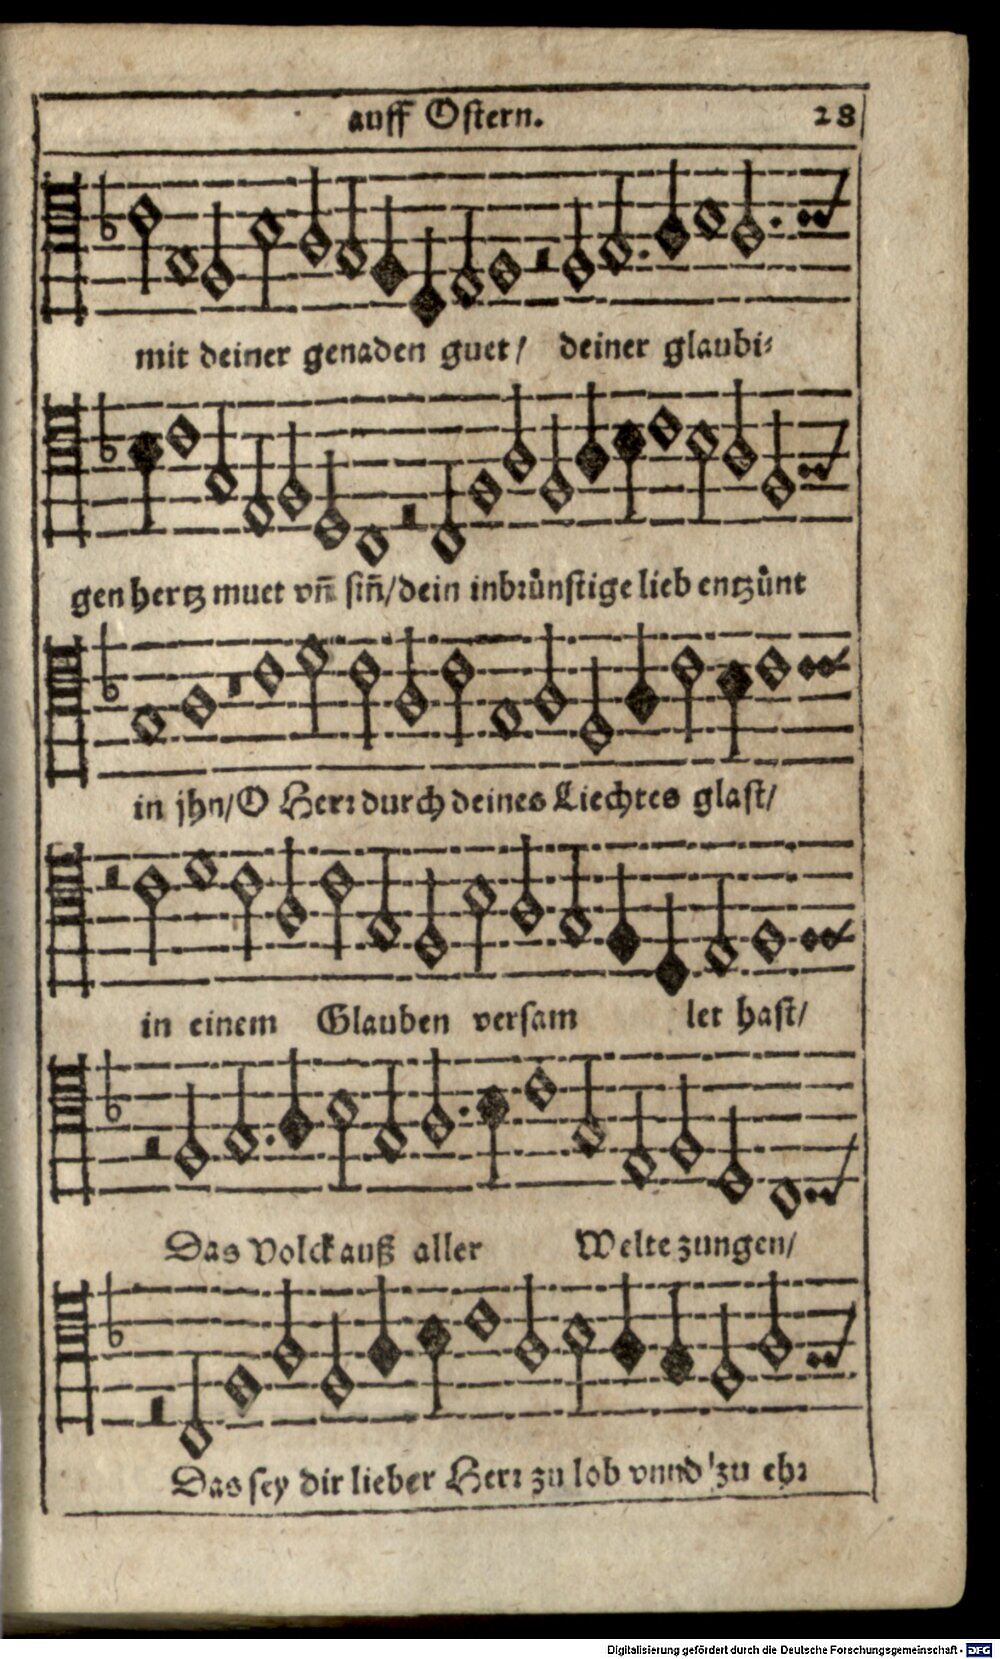 auff Ostern. 28
mit deiner genaden guet/ deiner glaubi⸗
gen hertz muet vñ siñ/dein inbrůnstige lieb entzůnt
in jhn/O Herr durch deines Liechtes glast/
in einem Glauben versam let hast/
Das Volck auß aller Welte zungen/
Das sey dir lieber Herr zu lob vnnd zu ehr
Digitalisierung gefördert durch die Deutsche Forschungsgemeinschaft - DFG